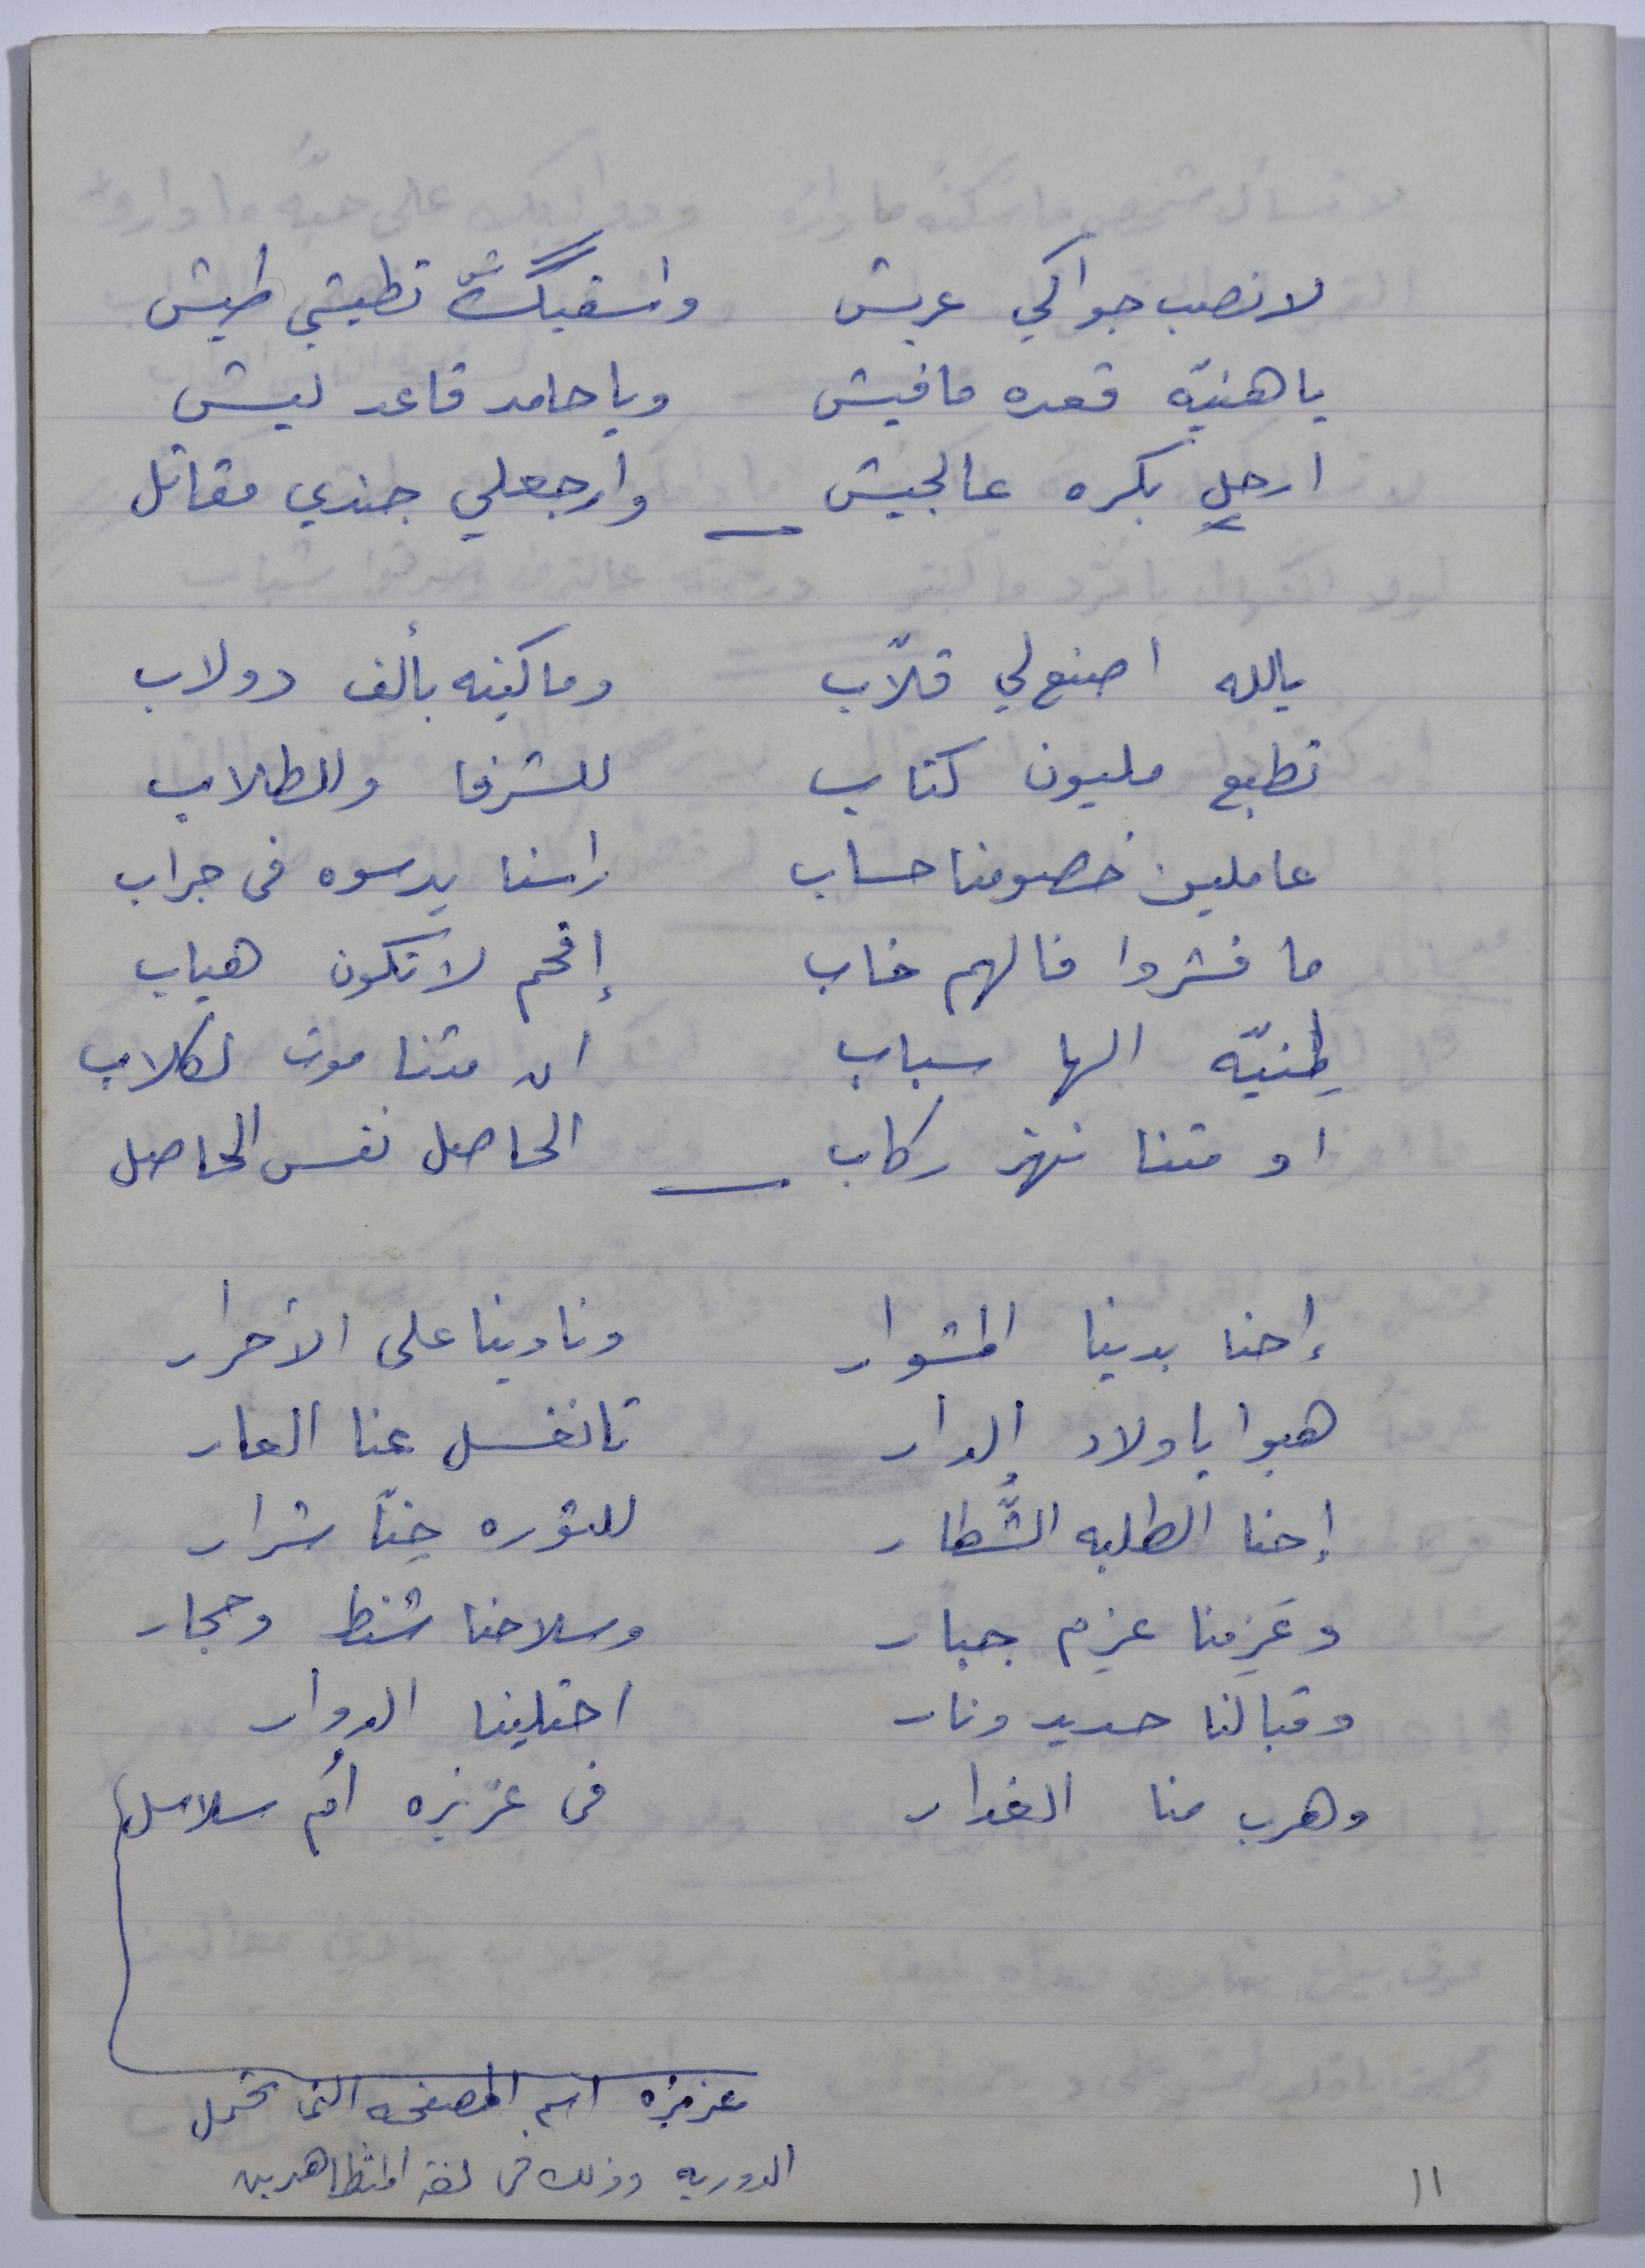 لانصب جواكي عريش واسقيك تطيشي طيش
ياهنيّه قعده مافيش وياحامد قاعد ليش
ارحل بكره عالجيش _ وارجعلي جندي مقاتل
يالله اصنع لي قلّاب وماكينه بألف دولاب
تطبع مليون كتاب للشرفا والطلاب
عاملين خصومنا حساب راسنا يدرسوه في جراب
ما فشروا فالهم خاب إقحم لا تكون هياب
طِنيّه الها سباب ان متنا موت لكلاب
او متنا نهز ركاب _ الحاصل نفس الحاصل
إحنا بدينا المشوار ونادينا على الأحرار
هبوا ياولاد الدار تانغسل عنا العار
إحنا الطلبه الشُّطار للثوره جِنّا شرار
وعَزِمنا عزم جبار وسلاحنا شنط وحجار
وقبالنا حديد ونار احتلينا الدوار
وهرب منا الغدار في عزيزه أم سلاسل
عزيزه اسم المصفحه التي تحمل
الدوريه وذلك في لغة المتظاهرين
١١